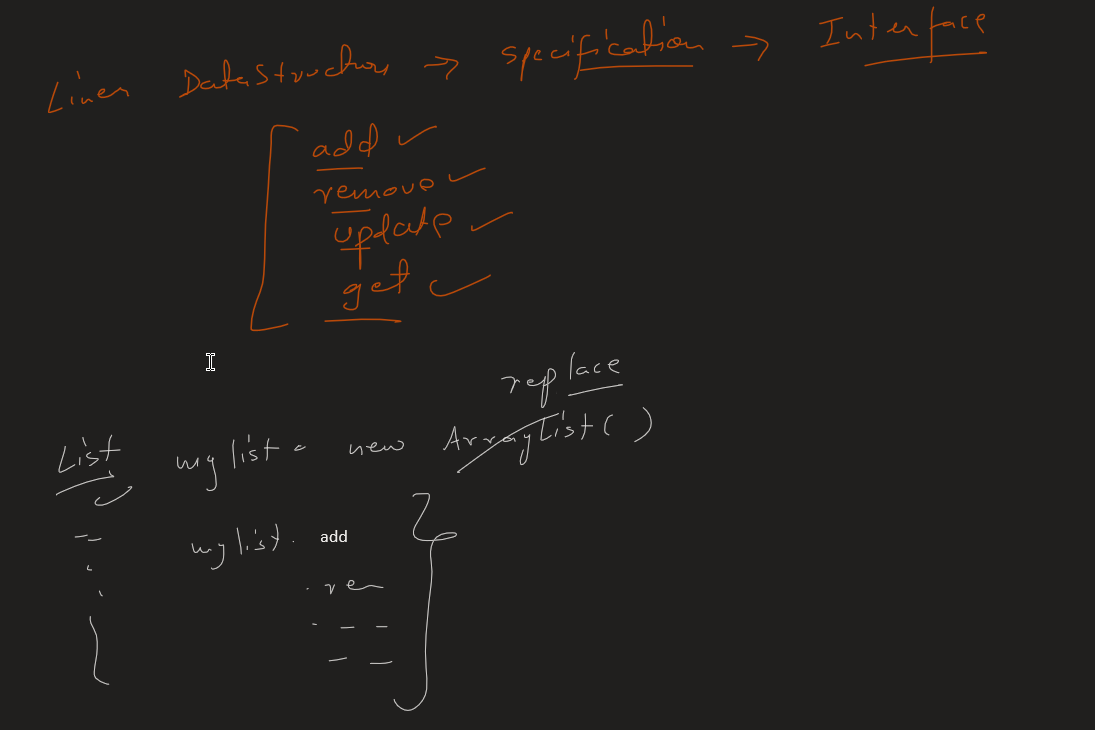 Linear DataStructure → specification → Interface
add ✓
remove ✓
update ✓
get ✓
replace
List mylist = new ArrayList( )
mylist. add
. rem
. _ _
_ _